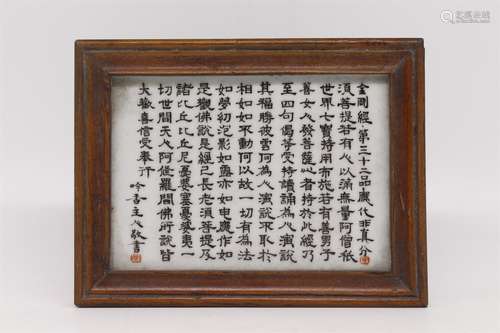 金剛經·第三十二品應化非真分
須菩提若有人以滿無量阿僧祇
世界七寶持用布施若有善男子
善女人發菩薩心者持於此經乃
至四句偈等受持讀誦為人演說
其福勝彼云何為人演說不取於
相如如不動何以故一切有為法
如夢幻泡影如露亦如電應作如
是觀佛說是經已長老須菩提及
諸比丘比丘尼優婆塞優婆夷一
切世間天人阿修羅聞佛所說皆
大歡喜信受奉行
吟香主人敬書